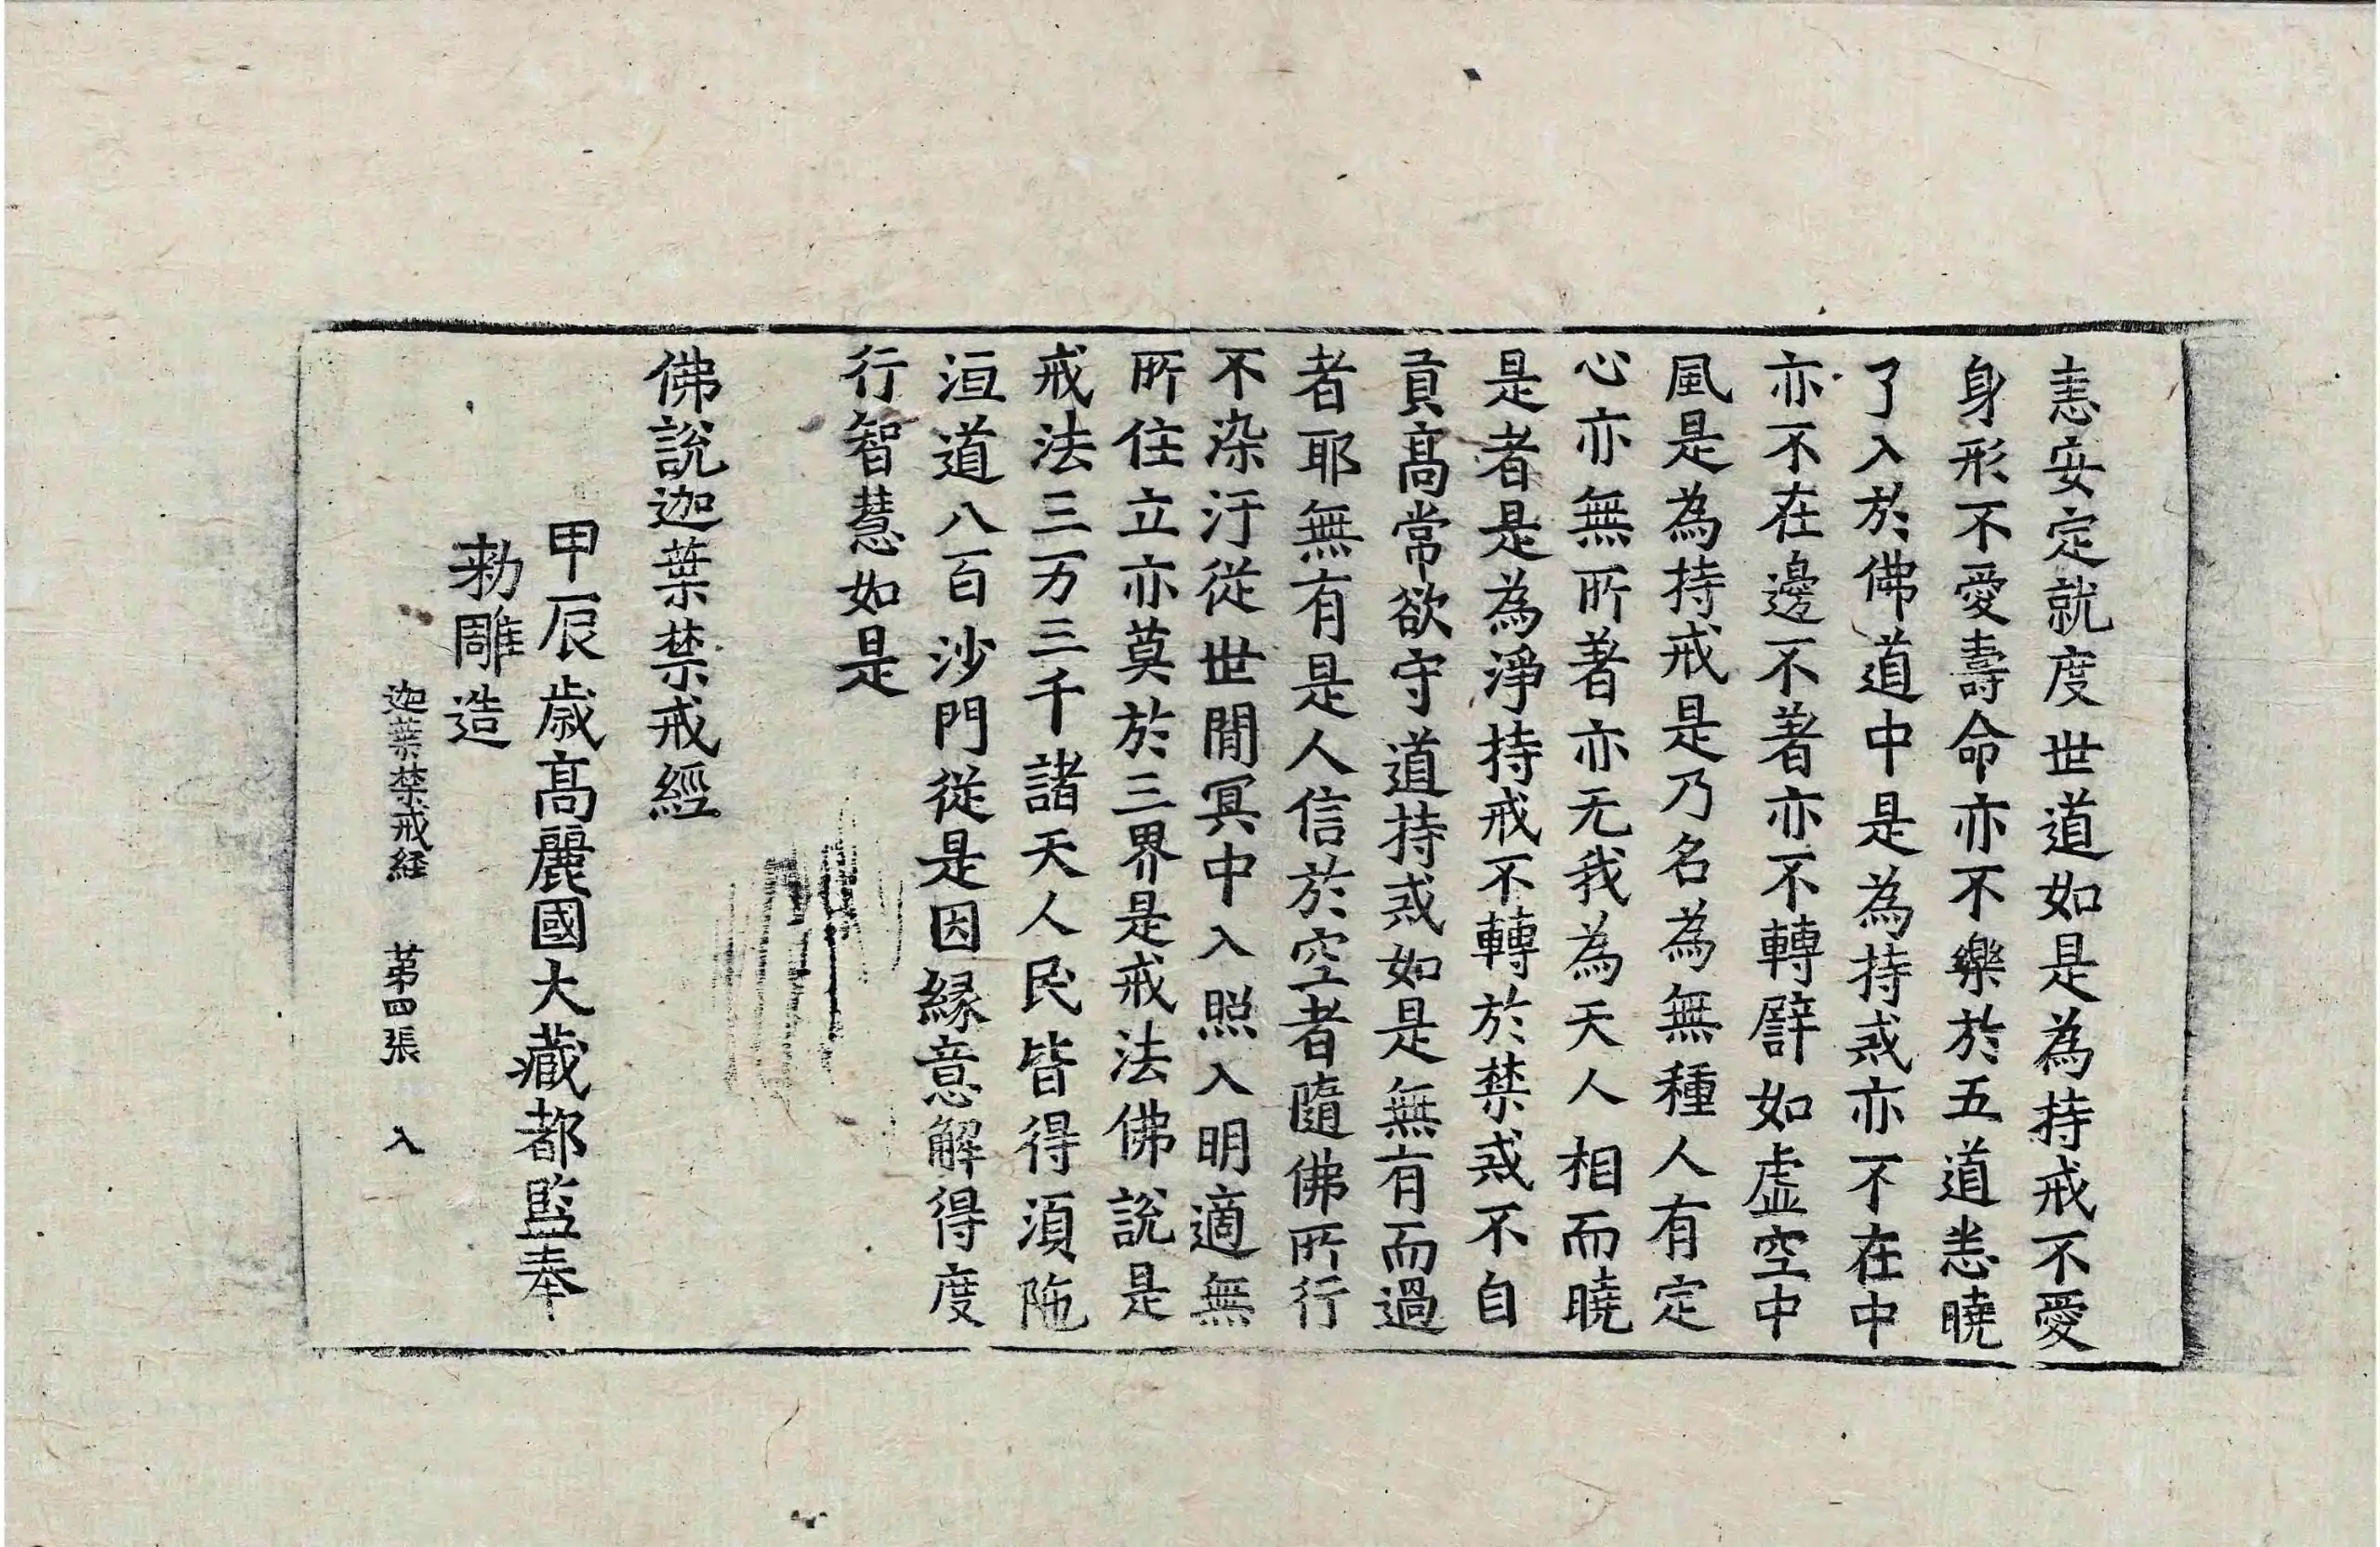 恚安定就度世道如是為持戒不愛
身形不愛壽命亦不樂於五道悉曉
了入於佛道中是為持戒亦不在中
亦不在邊不著亦不轉譬如虛空中
風是為持戒是乃名為無種人有定
心亦無所著亦无我為天人相而曉
是者是為淨持戒不轉於禁戒不自
貢高常欲守道持戒如是無有而過
者耶無有是人信於空者隨佛所行
不染汙從世間冥中入照入明適無
所住立亦莫於三界是戒法佛說是
戒法三万三千諸天人民皆得須陁
洹道八百沙門從是因緣意解得度
行智慧如是
佛說迦葉禁戒經
甲辰歲高麗國大藏都監奉
勑雕造
迦葉禁戒経 苐四張 入